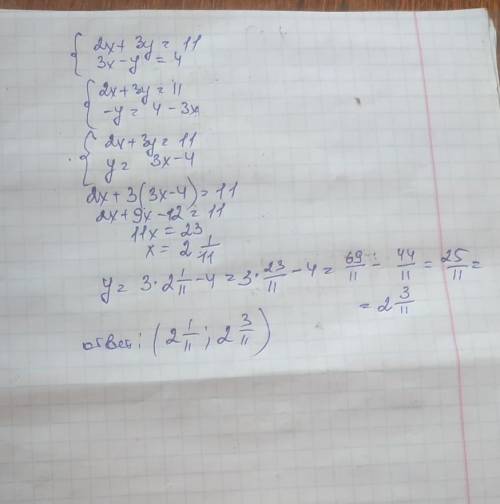 2x + 3y = 11
3x - y = 4
2x + 3y = 11
-y = 4 - 3x
2x + 3y = 11
y = 3x - 4
2x + 3(3x - 4) = 11
2x + 9x - 12 = 11
11x = 23
x = 2 1/11
y = 3 · 2 1/11 - 4 = 3 · 23/11 - 4 = 69/11 - 44/11 = 25/11 =
= 2 3/11
ответ: (2 1/11 ; 2 3/11)